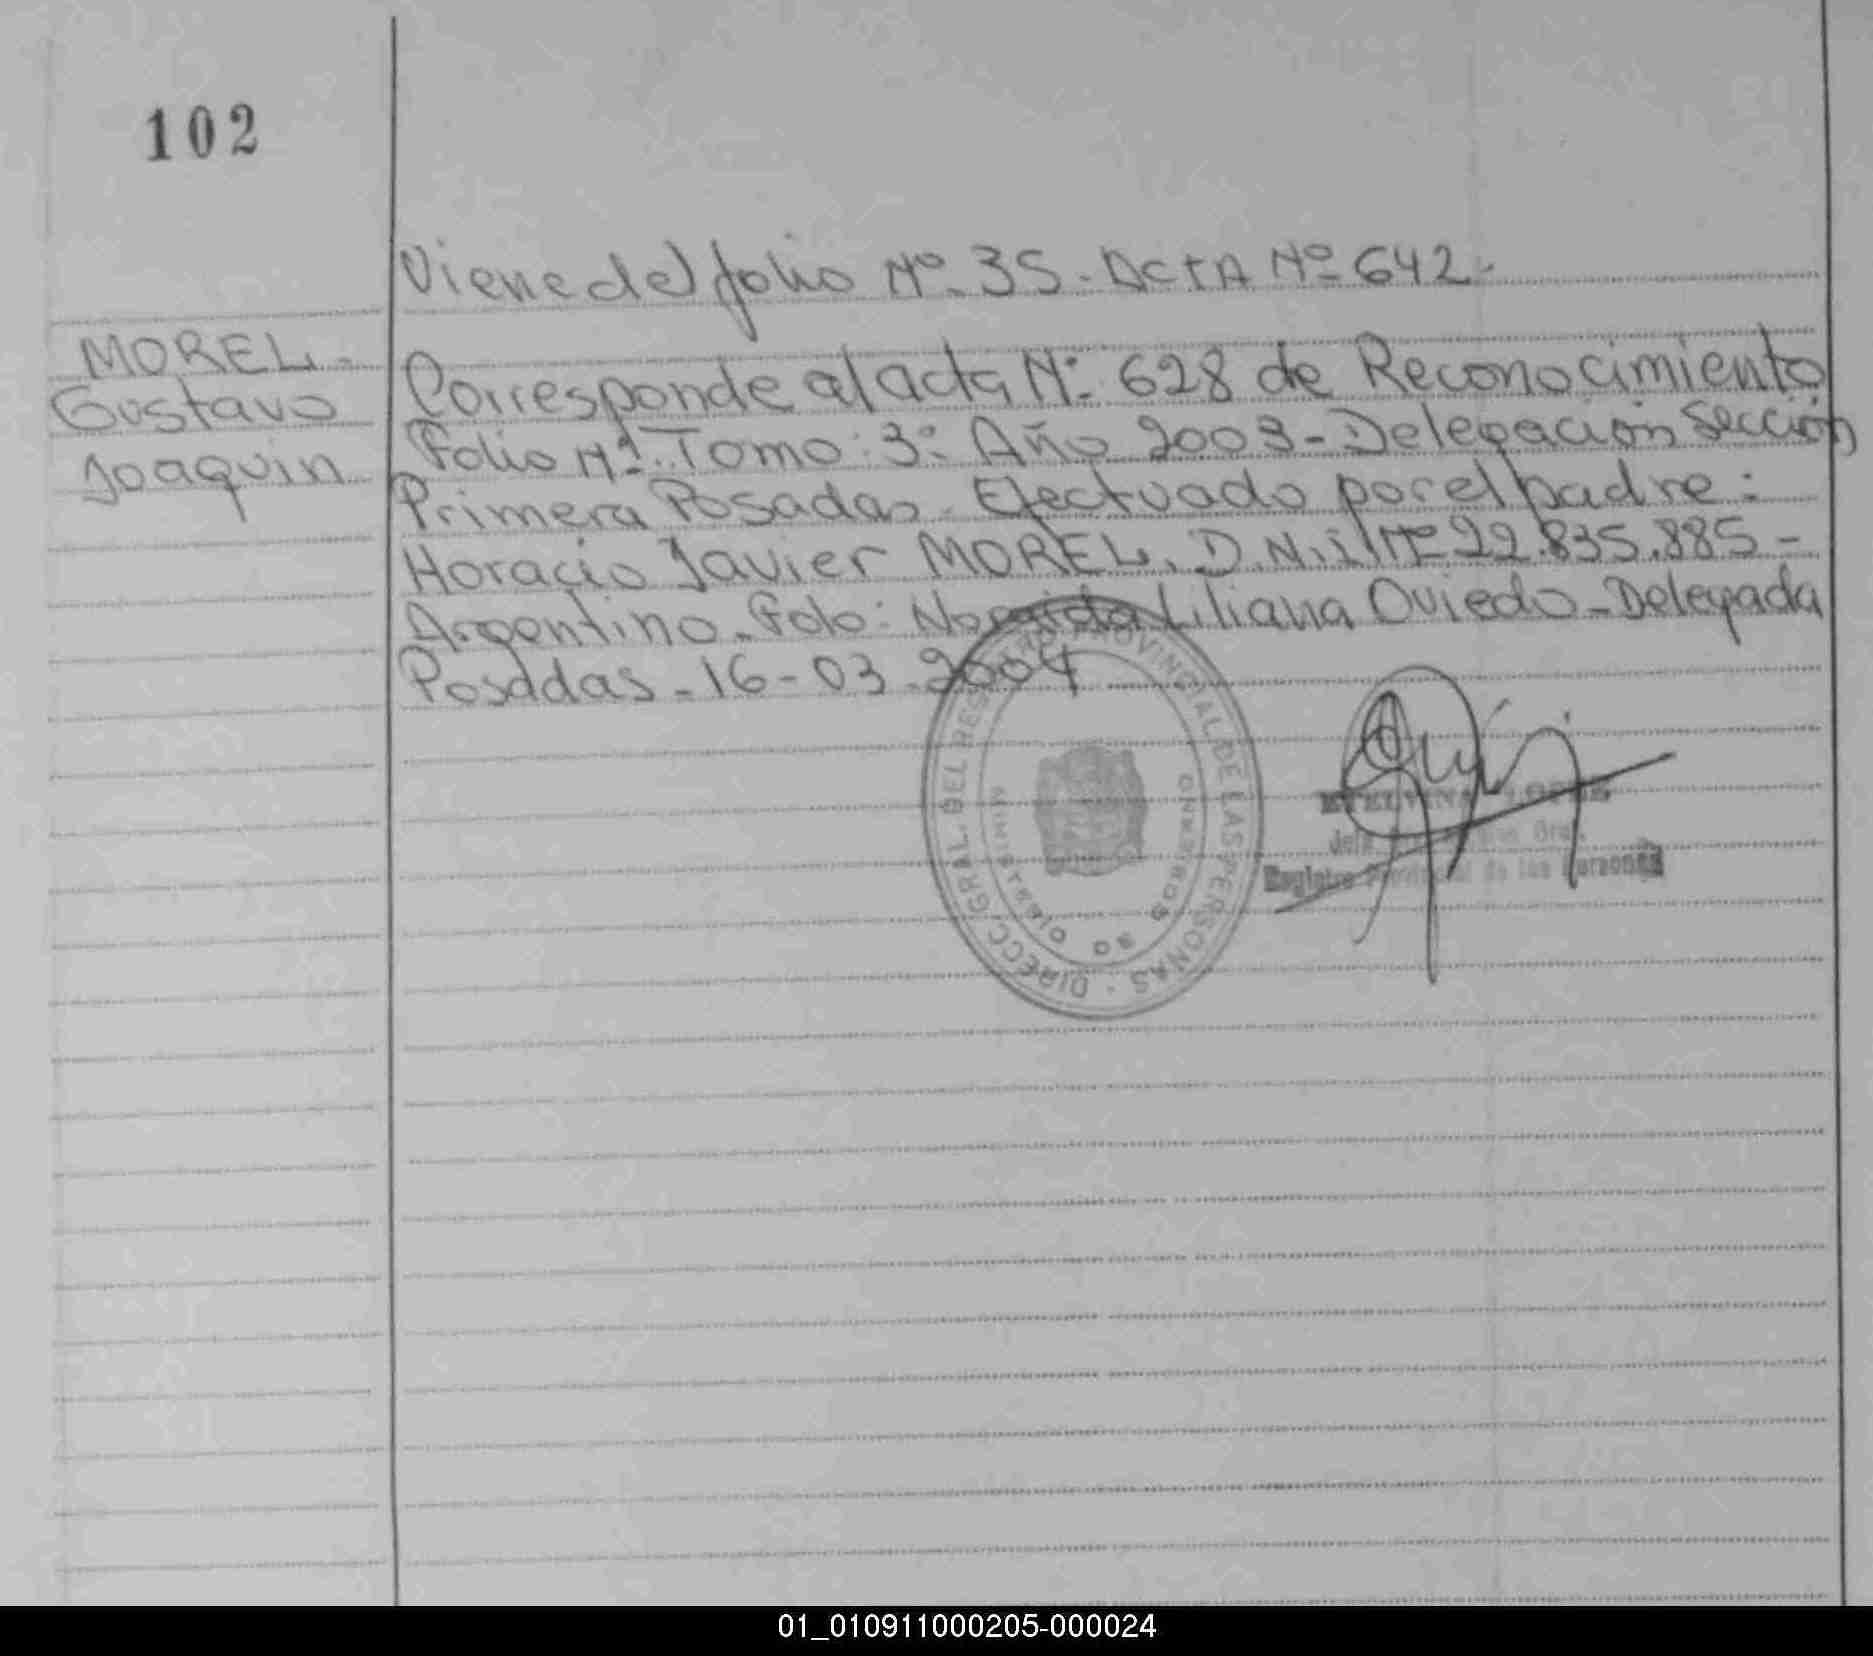 102
Viene del folio Nº 35 - ACTA Nº 642 -
MOREL -
Gustavo
Joaquin
Corresponde al acta Nº 628 de Reconocimiento
Folio Nº Tomo: 3º Año 2003 - Delegación Sección
Primera Posadas - Efectuado por el padre:
Horacio Javier MOREL. D.N.i Nº 22.835.885 -
Argentino - Fdo: Liliana Oviedo - Delegada
Posadas - 16 - 03 - 2004
DIRECC. GRAL. DEL REGISTRO PROVINCIAL DE LAS PERSONAS -
MINISTERIO DE GOBIERNO
ETELVINA LOPEZ
Jefe Gral.
Registro Provincial de las Personas
01_010911000205-000024